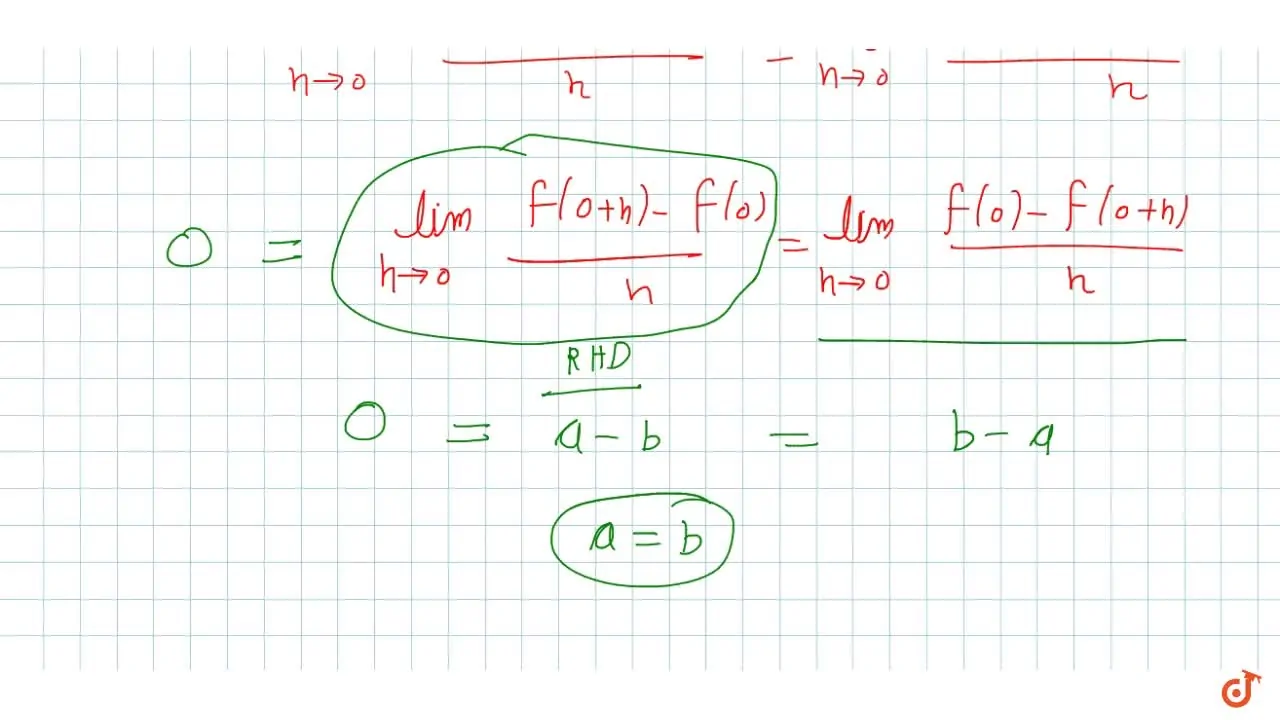 h→0 h - h→0 h
0 = lim h→0 f(0+h) - f(0) / h = lim h→0 f(0) - f(0+h) / h
RHD
0 = a - b = b - a
a = b